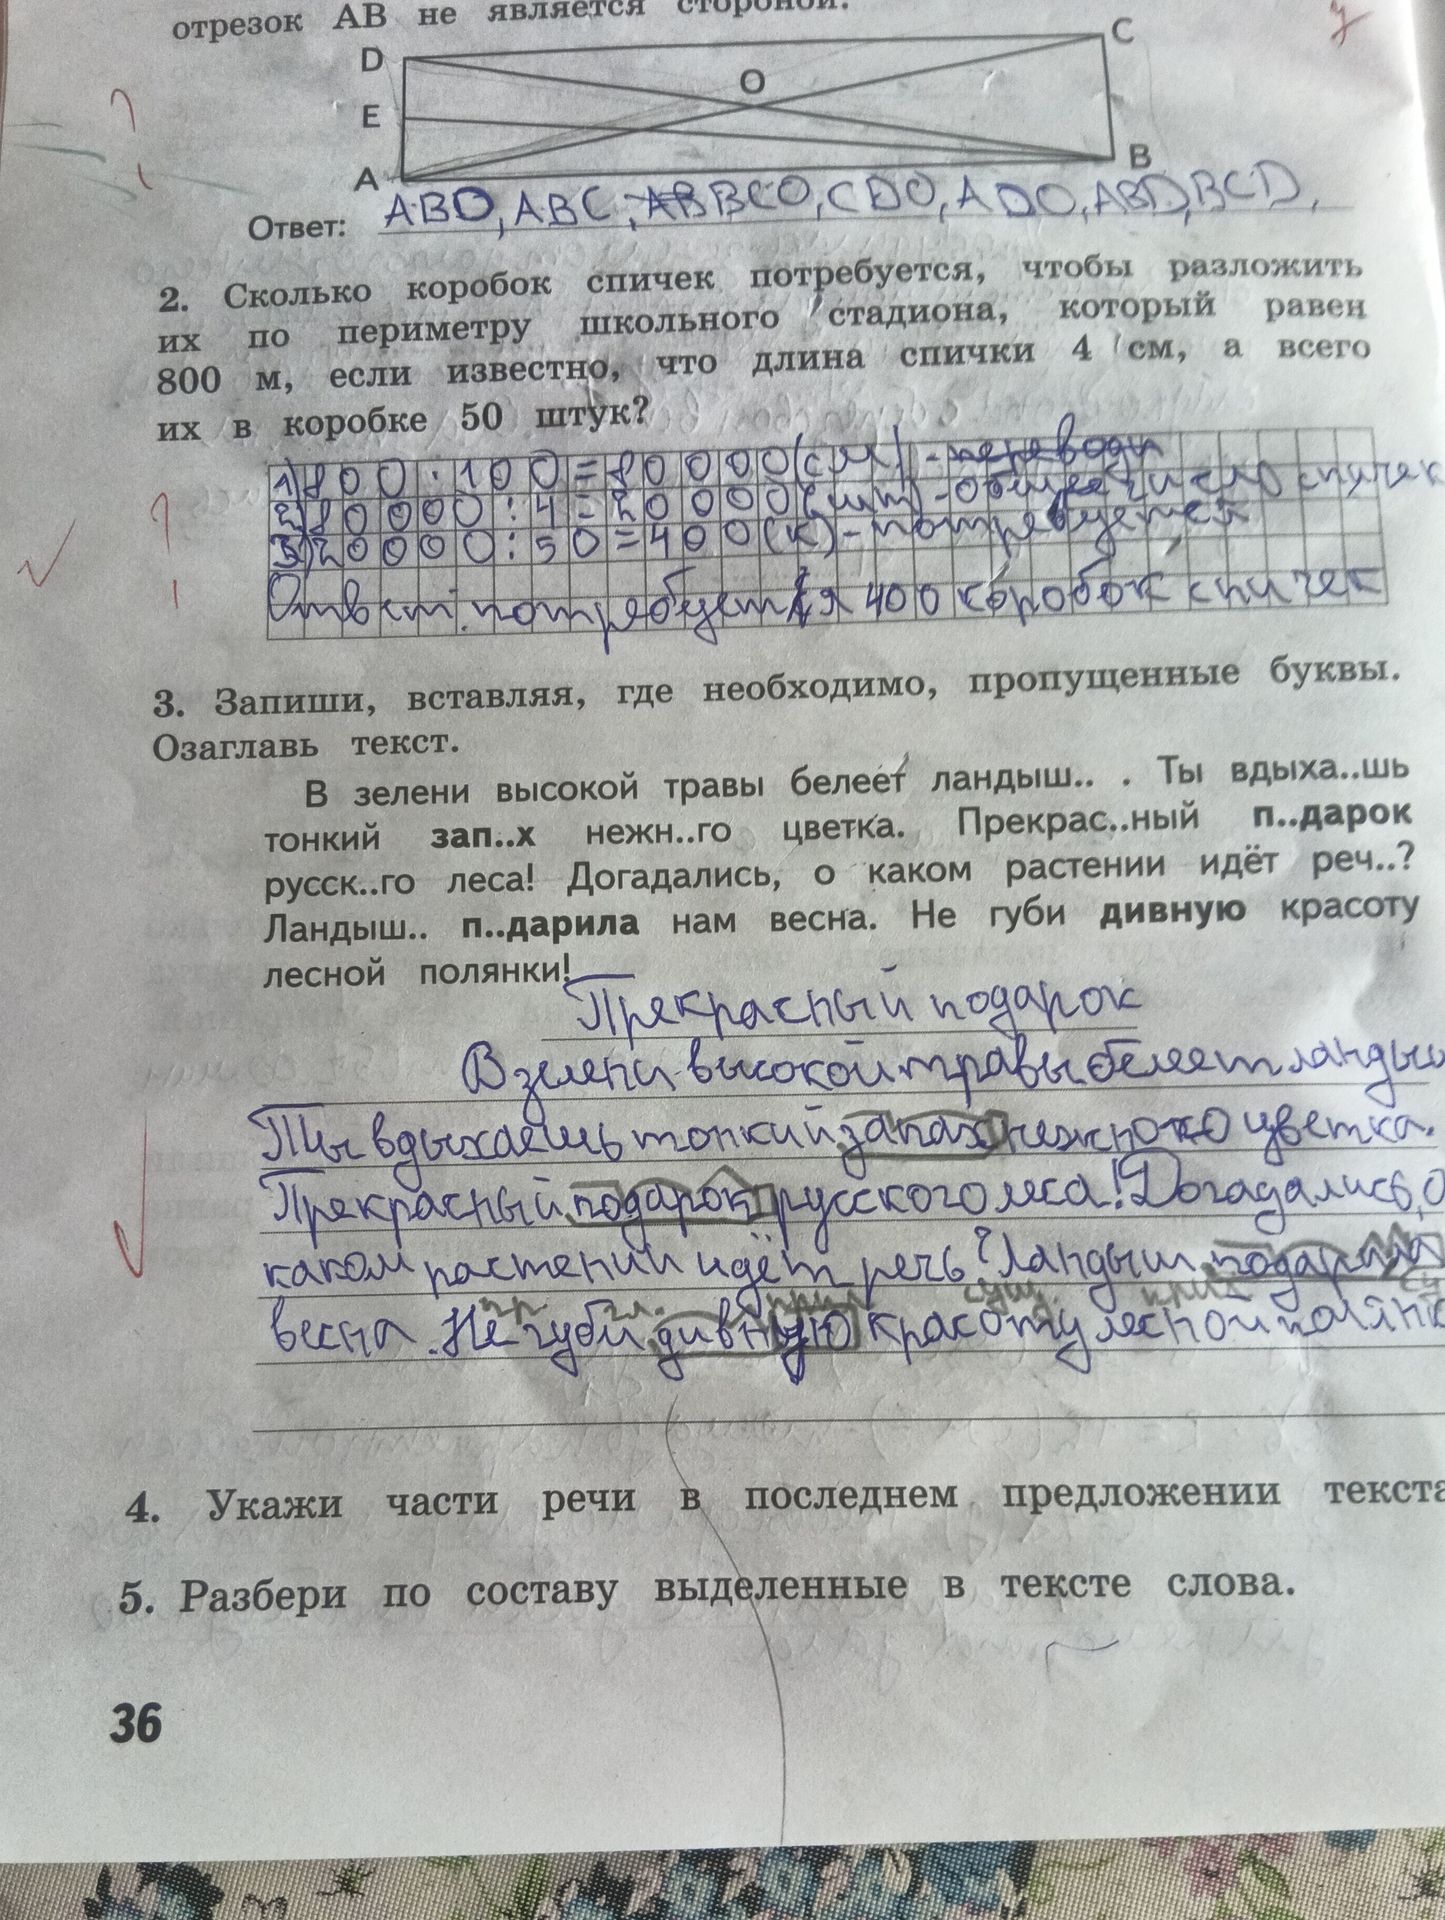 отрезок АВ не является стороной.
D
C
O
E
A
B
Ответ: АВО, АВС, ВСО, СDO, ADO, ABD, BCD,
2. Сколько коробок спичек потребуется, чтобы разложить
их по периметру школьного стадиона, который равен
800 м, если известно, что длина спички 4 см, а всего
их в коробке 50 штук?
1) 800 · 100 = 80000 (см) - переводи
2) 80000 : 4 = 20000 (шт) - общее число спичек
3) 20000 : 50 = 400 (к) - потребуется
Ответ: потребуется 400 коробок спичек
3. Запиши, вставляя, где необходимо, пропущенные буквы.
Озаглавь текст.
В зелени высокой травы белеет ландыш.. . Ты вдыха..шь
тонкий зап..х нежн..го цветка. Прекрас..ный п..дарок
русск..го леса! Догадались, о каком растении идёт реч..?
Ландыш.. п..дарила нам весна. Не губи дивную красоту
лесной полянки!
Прекрасный подарок
В зелени высокой травы белеет ланды
Ты вдыхаешь тонкий запах нежного цветка.
Прекрасный подарок русского леса! Догадались, о
каком растении идёт речь? Ландыш подарила
пр. гл. прил сущ. прил су
весна. Не губи дивную красоту лесной полянк
4. Укажи части речи в последнем предложении текста
5. Разбери по составу выделенные в тексте слова.
36